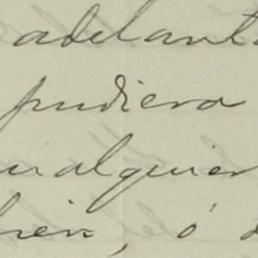 adelant
pudiera
ualquier
bien, ó d